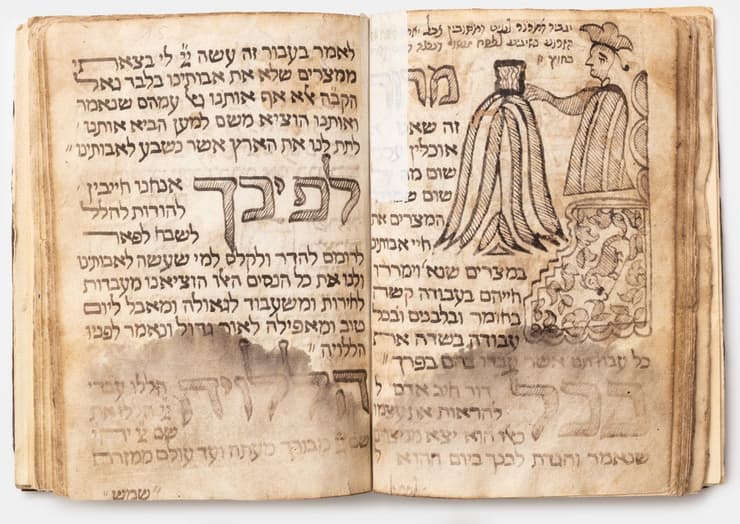 מרור
זה שאנו
אוכלין
שום מה
שום ש
המצרים את
חיי אבותינו
במצרים שנא׳ וימררו
חייהם בעבודה קשה
בחומר ובלבנים ובכל
עבודה בשדה את
כל עבודתם אשר עבדו בהם בפרך
בכל
דור חייב אדם ל
להראות את עצמו
כאו הוא יצא ממצרים
שנאמר והגדת לבנך ביום ההוא ל
לאמר בעבור זה עשה יי לי בצאתי
ממצרים שלא את אבותינו בלבד גאל
הקבה אלא אף אותנו גאל עמהם שנאמר
ואותנו הוציא משם למען הביא אותנו
לתת לנו את הארץ אשר נשבע לאבותינו
לפיכך
אנחנו חייבין
להודות להלל
לשבח לפאר
לרומם להדר ולקלס למי שעשה לאבותינו
ולנו את כל הנסים האלו הוציאנו מעבדות
לחירות ומשעבוד לגאולה ומאבל ליום
טוב ומאפילה לאור גדול ונאמר לפניו
הללויה
הללויה
הללו עבדי
יי הללו את
שם יי יהי
שם יי מבורך מעתה ועד עולם ממזרח
שמש